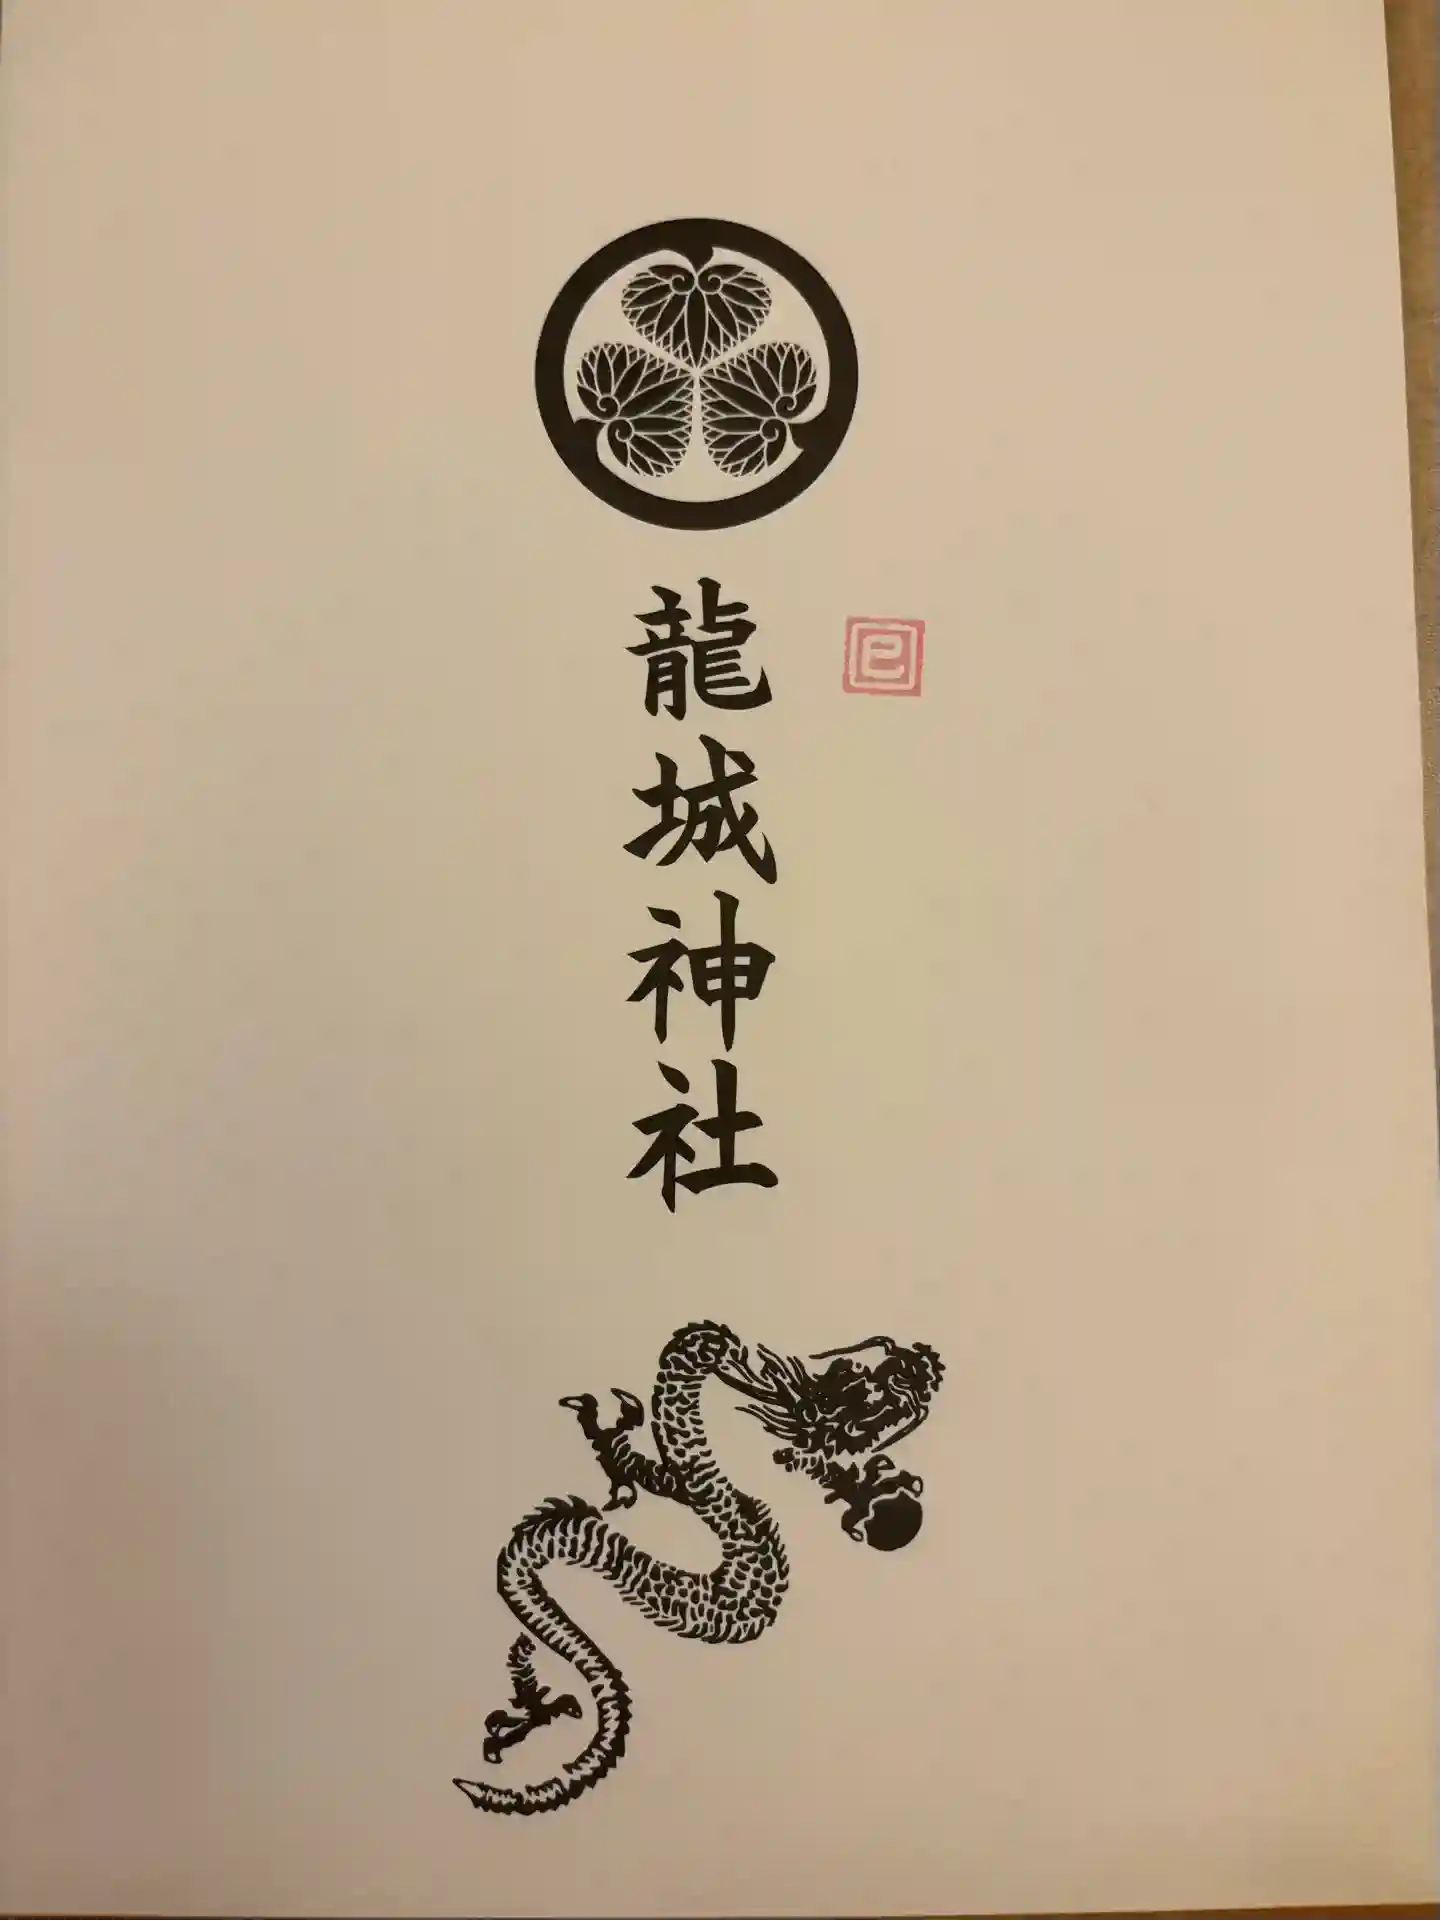 龍城神社
巳